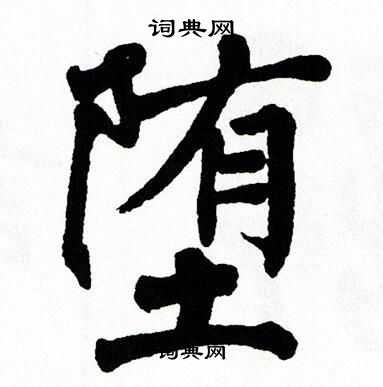 词典网
堕
词典网